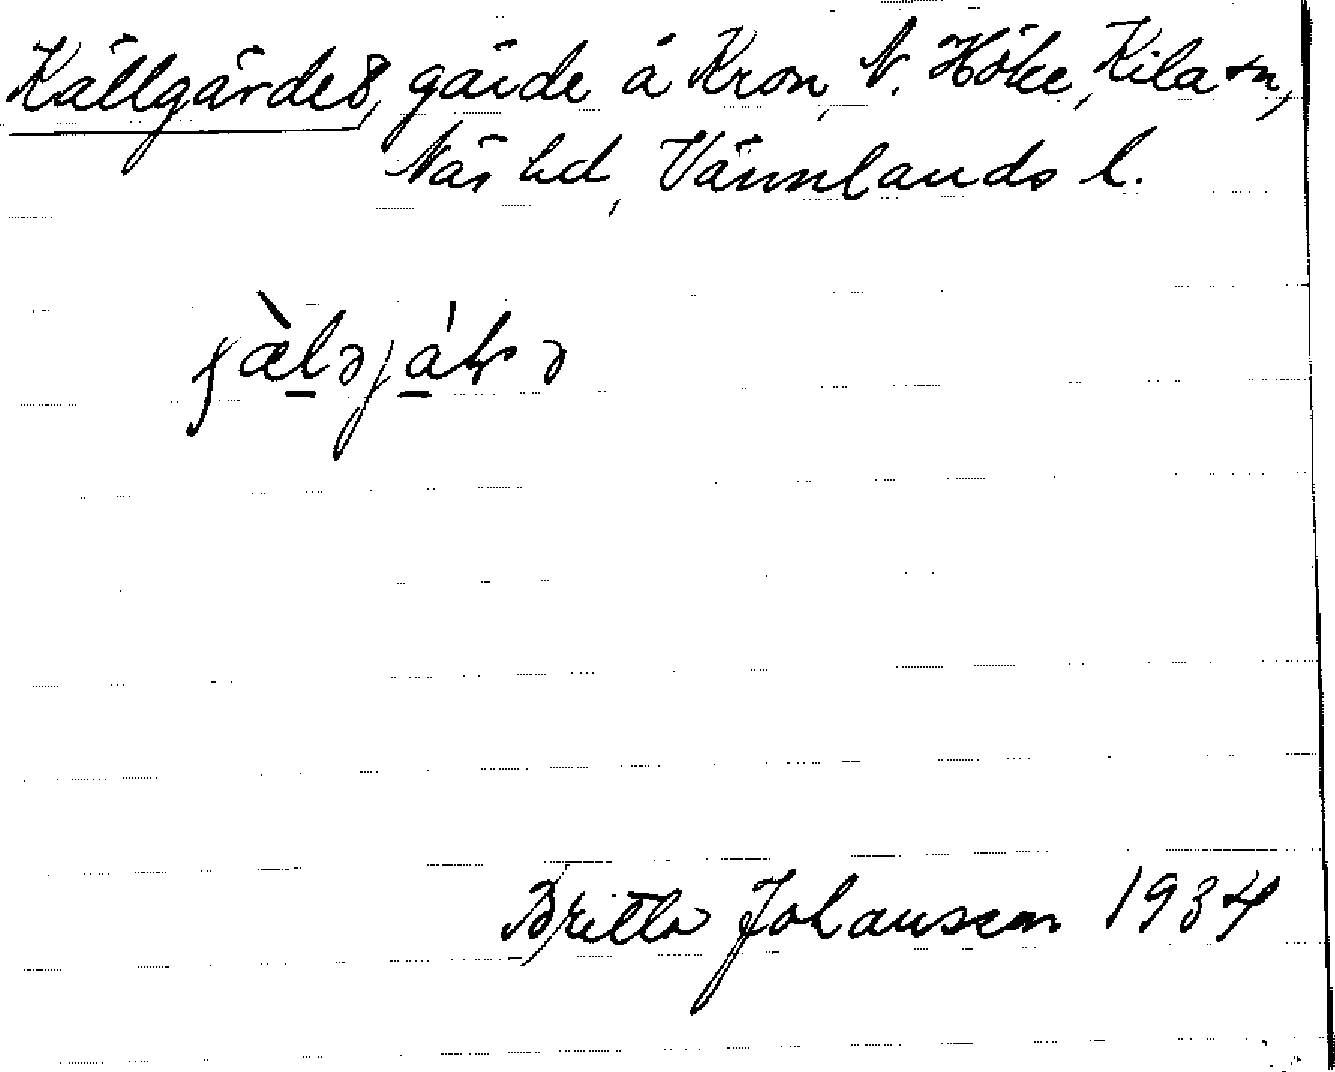 Källgärdet, gärde å Kron, N. Höke, Kila sn,
Näs hd, Värmlands l.
Britta Johansson 1934